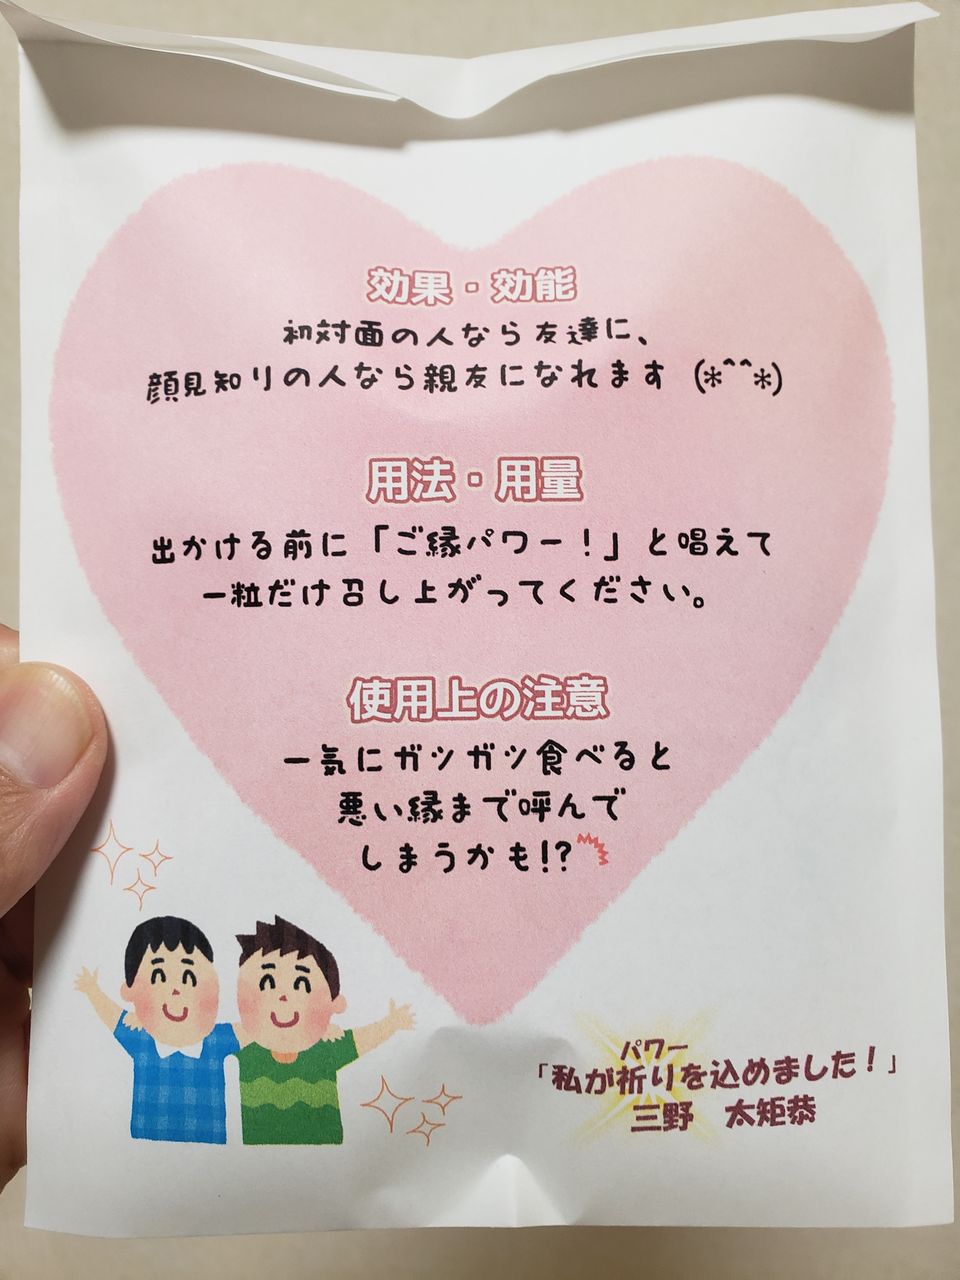 効果・効能
初対面の人なら友達に、
顔見知りの人なら親友になれます (*^^*)
用法・用量
出かける前に「ご縁パワー！」と唱えて
一粒だけ召し上がってください。
使用上の注意
一気にガツガツ食べると
悪い縁まで呼んで
しまうかも!?
パワー
「私が祈りを込めました！」
三野　太矩恭